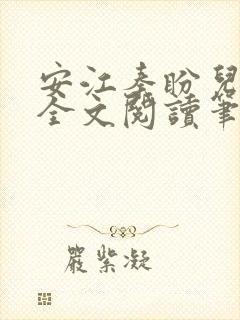 安江秦盼兒
全文閱讀筆
嚴紫凝